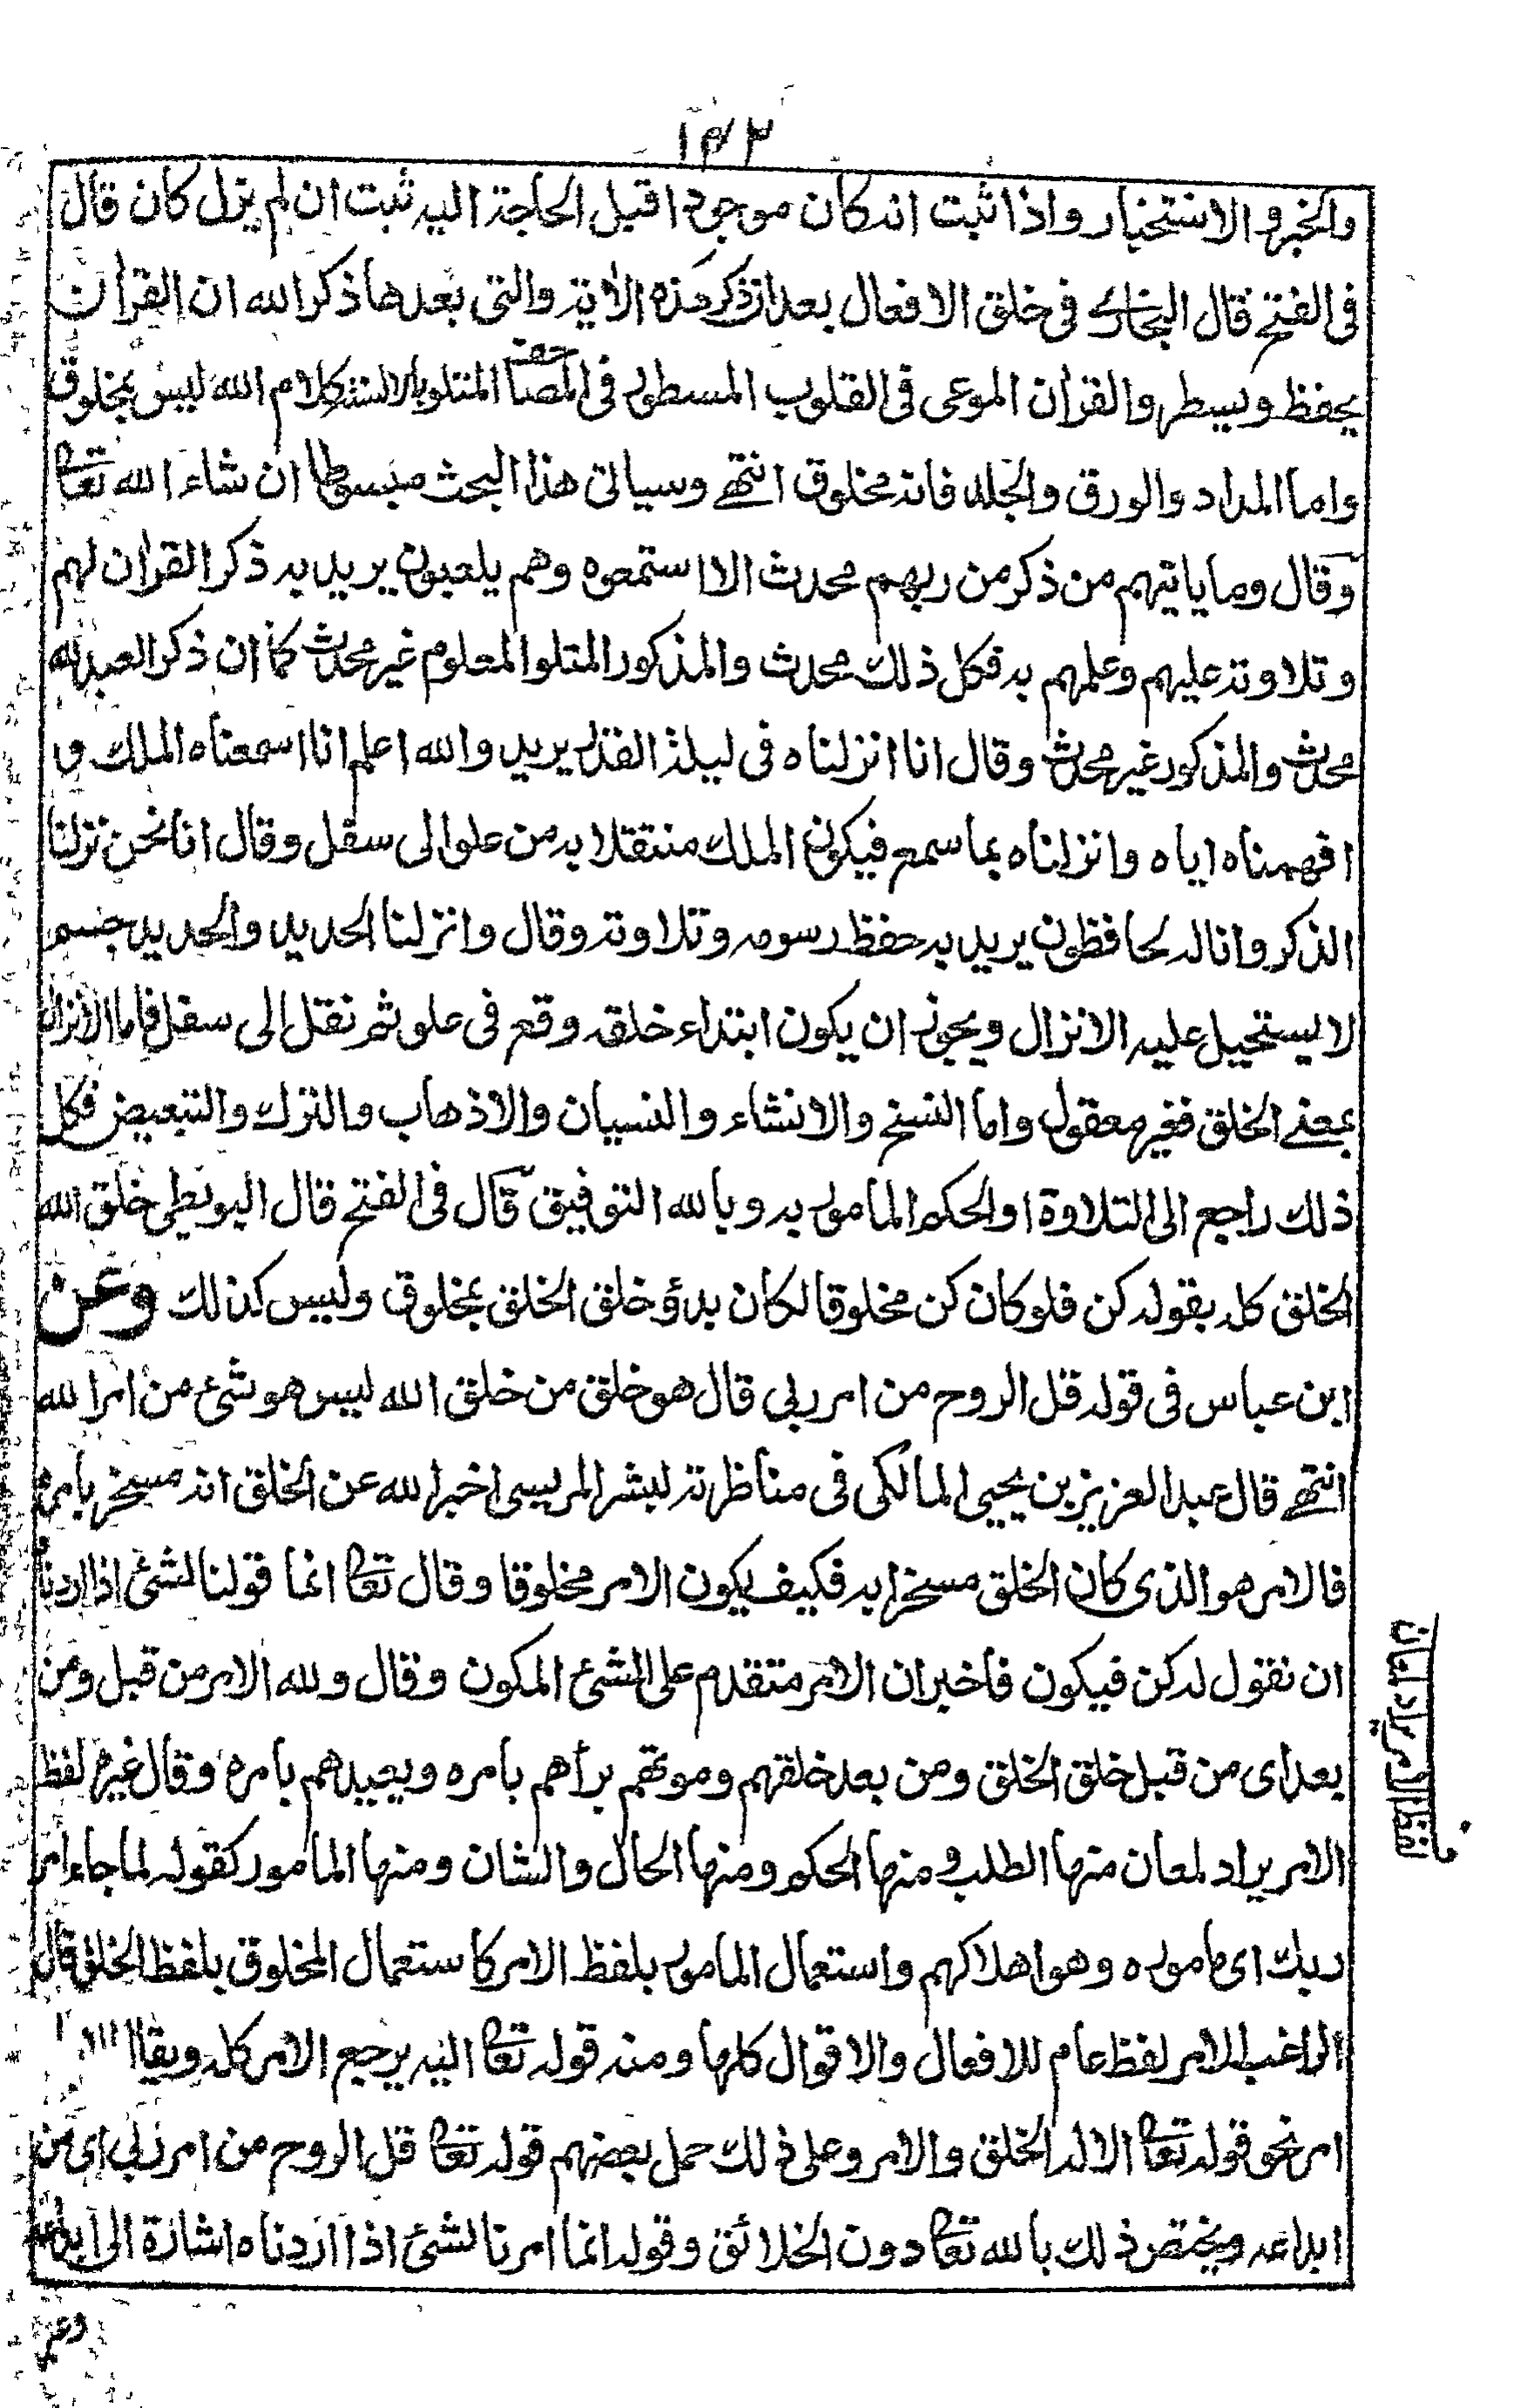 ١٤٢
والخبر والاستخبار واذا ثبت انه كان موجودا قبل الحاجة اليه ثبت ان لم يزل كان قال
فى الفتح قال البخارى فى خلق الافعال بعد ان ذكر هذه الاية والتى بعدها ذكر الله ان القرآن
يحفظ ويسطر والقرآن الموعى فى القلوب المسطور فى المصاحف المتلو بالالسنة كلام الله ليس بمخلوق
واما المداد والورق والجلد فانه مخلوق انتهى وسياتى هذا البحث مبسوطا ان شاء الله تعا
وقال وما ياتيهم من ذكر من ربهم محدث الا استمعوه وهم يلعبون يريد به ذكر القرآن لهم
وتلاوته عليهم وعلمهم به فكل ذلك محدث والمذكور المتلو المعلوم غير محدث كما ان ذكر العبد لله
محدث والمذكور غير محدث وقال انا انزلناه فى ليلة القدر يريد والله اعلم انا اسمعناه الملك و
افهمناه اياه وانزلناه بما سمع فيكون الملك منتقلا به من علو الى سفل وقال انا نحن نزلنا
الذكر وانا له لحافظون يريد به حفظ رسومه وتلاوته وقال وانزلنا الحديد والحديد جسم
لا يستحيل عليه الانزال ويجوز ان يكون ابتداء خلقه وقع فى علو ثم نقل الى سفل فاما الانزال
بمعنى الخلق فغير معقول واما النسخ والانشاء والنسيان والاذهاب والترك والتبعيض فكل
ذلك راجع الى التلاوة او الحكم المامور به وبالله التوفيق قال فى الفتح قال البويطى خلق الله
الخلق كله بقوله كن فلو كان كن مخلوقا لكان بدؤ خلق الخلق بمخلوق وليس كذلك وعن
ابن عباس فى قوله قل الروح من امر ربى قال هو خلق من خلق الله ليس هو شئ من امر الله
انتهى قال عبد العزيز بن يحيى المالكى فى مناظرته لبشر المريسى اخبر الله عن الخلق انه مسخر بامره
فالامر هو الذى كان الخلق مسخرا به فكيف يكون الامر مخلوقا وقال تعا انما قولنا لشئ اذا اردنا
ان نقول له كن فيكون فاخبر ان الامر متقدم على الشئ المكون وقال ولله الامر من قبل ومن
بعد اى من قبل خلق الخلق ومن بعد خلقهم وموتهم برأهم بامره ويعيدهم بامره وقال غيره لفظ
الامر يراد لمعان منها الطلب ومنها الحكم ومنها الحال والشان ومنها المامور كقوله لما جاء امر
ربك اى ماموره وهو اهلاكهم واستعمال المامور بلفظ الامر كاستعمال المخلوق بلفظ الخلق قال
الراغب الامر لفظ عام للافعال والاقوال كلها ومنه قوله تعا اليه يرجع الامر كله ويقال
امر نحو قوله تعا الا له الخلق والامر وعلى ذلك حمل بعضهم قوله تعا قل الروح من امر ربى اى من
ابداعه ويختص ذلك بالله تعا دون الخلائق وقوله انما امرنا لشئ اذا اردناه اشارة الى ابداعه
لفظ الامر يراد لمعان
وعبر